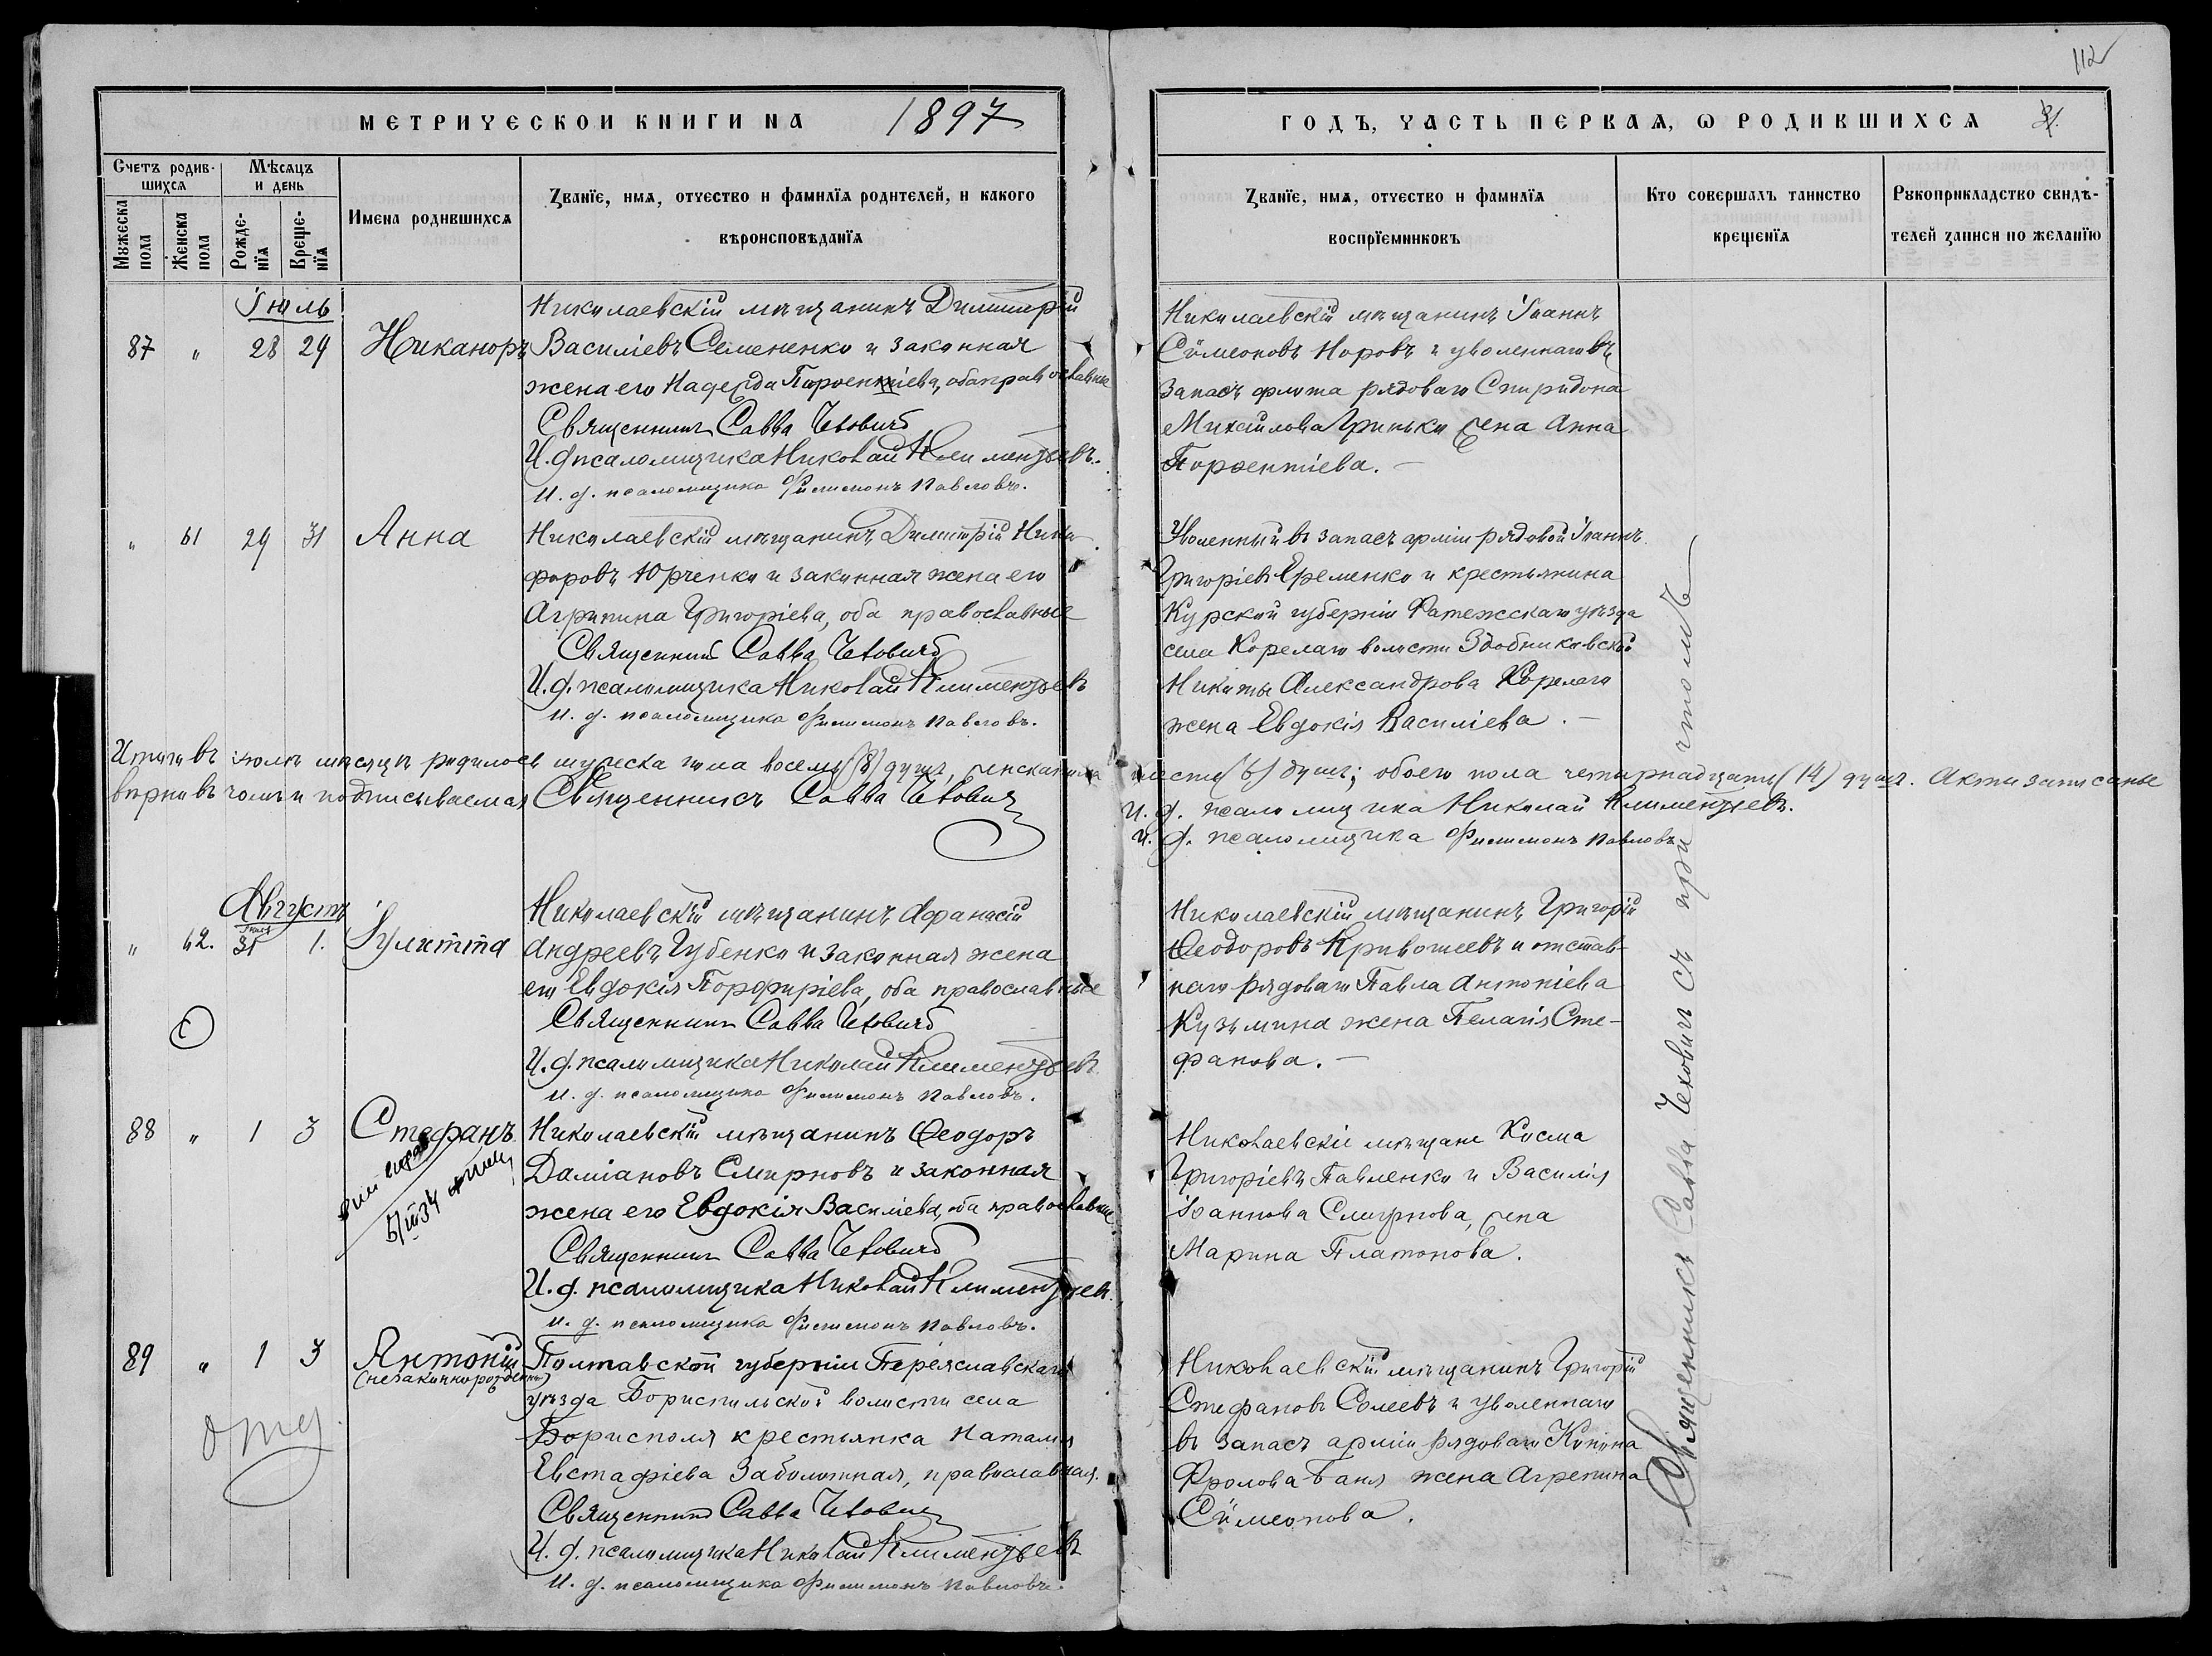 112
МЕТРИЧЕСКОЙ КНИГИ НА 1897
ГОДЪ, ЧАСТЬ ПЕРВАЯ, Ѡ РОДИВШИХСЯ
Счетъ родив-
шихся
Мѣсяцъ
и день
Мꙋжеска
пола
Женска
пола
Рожде-
нїя
Креще-
нїя
Имена родившихся
Званїе, имя, отчество и фамилїя родителей, и какого
вѣроисповѣданїя
Званїе, имя, отчество и фамилїя
воспрїемниковъ
Кто совершалъ таинство
крещенїя
Рꙋкоприкладство свидѣ-
телей записи по желанїю
Іюль
87 " 28 29 Никаноръ
Николаевскій мѣщанинъ Димитрій
Василіевъ Семененко и законная
жена его Надежда Пароентіева, оба православные
Священникъ Савва Чеховичъ
И. д. псаломщика Николай Климентьевъ.
И. д. псаломщика Филимонъ Павловъ.
Николаевскій мѣщанинъ Іоаннъ
Сѵмеоновъ Норовъ и уволеннаго въ
запасъ флота рядоваго Спиридона
Михаилова Гринько жена Анна
Пороентіева. —
" 61 29 31 Анна
Николаевскій мѣщанинъ Димитрій Ники-
форовъ Юрченко и законная жена его
Агрипина Григоріева, оба православные
Священникъ Савва Чеховичъ
И. д. псаломщика Николай Климентьевъ
И. д. псаломщика Филимонъ Павловъ.
Уволенный въ запасъ арміи рядовой Іоаннъ
Григоріевъ Еременко и крестьянина
Курской губерніи Фатежскаго уѣзда
села Корелаго волости Здобниковской
Никиты Александрова Корелаго
жена Евдокія Василіева. —
Итого въ іюлѣ мѣсяцѣ родилось мужеска пола восемь (8) душъ, женска пола шесть (6) душъ; обоего пола четырнадцать (14) душъ. Акты записаны
вѣрно въ чомъ и подписываемся Священникъ Савва Чеховичъ
И. д. псаломщика Николай Климентьевъ.
И. д. псаломщика Филимонъ Павловъ
Августъ
Іюль
" 62. 31 1. Іулитта
Николаевскій мѣщанинъ Афанасій
Андреевъ Губенко и законная жена
его Евдокія Порфиріева, оба православные
Священникъ Савва Чеховичъ
И. д. псаломщика Николай Климентьевъ
И. д. псаломщика Филимонъ Павловъ.
Николаевскій мѣщанинъ Григорій
Ѳеодоровъ Кривошеевъ и отстав-
наго рядоваго Павла Антоніева
Кузьмина жена Пелагія Сте-
фанова. —
88 " 1 3 Стефанъ.
5/III 34
Николаевскій мѣщанинъ Ѳеодоръ
Даміановъ Смирновъ и законная
жена его Евдокія Василіева, оба православные
Священникъ Савва Чеховичъ
И. д. псаломщика Николай Климентьевъ.
И. д. псаломщика Филимонъ Павловъ.
Николаевскіе мѣщане Косма
Григоріевъ Павленко и Василія
Іоаннова Смирнова, жена
Марина Платонова.
89 " 1 3 Антоній
(незаконнорожденный)
Полтавской губерніи Переяславскаго
уѣзда Бориспильской волости села
Борисполя крестьянка Наталія
Евстафіева Заболотная, православная.
Священникъ Савва Чеховичъ
И. д. псаломщика Николай Климентьевъ
И. д. псаломщика Филимонъ Павловъ.
Николаевскій мѣщанинъ Григорій
Стефановъ Солеевъ и уволеннаго
въ запасъ арміи рядоваго Конона
Фролова Баня жена Агрепина
Сѵмеонова.
Священникъ Савва Чеховичъ съ причтомъ